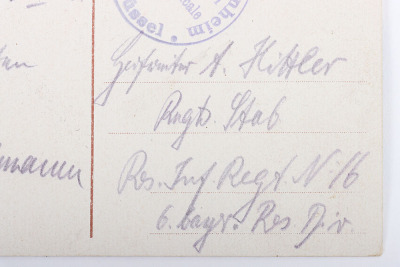 nheim • Jessen
Gefreiter A. Hittler
Regts. Stab
Res. Inf. Regt. N. 16
6. bayr. Res. Div.